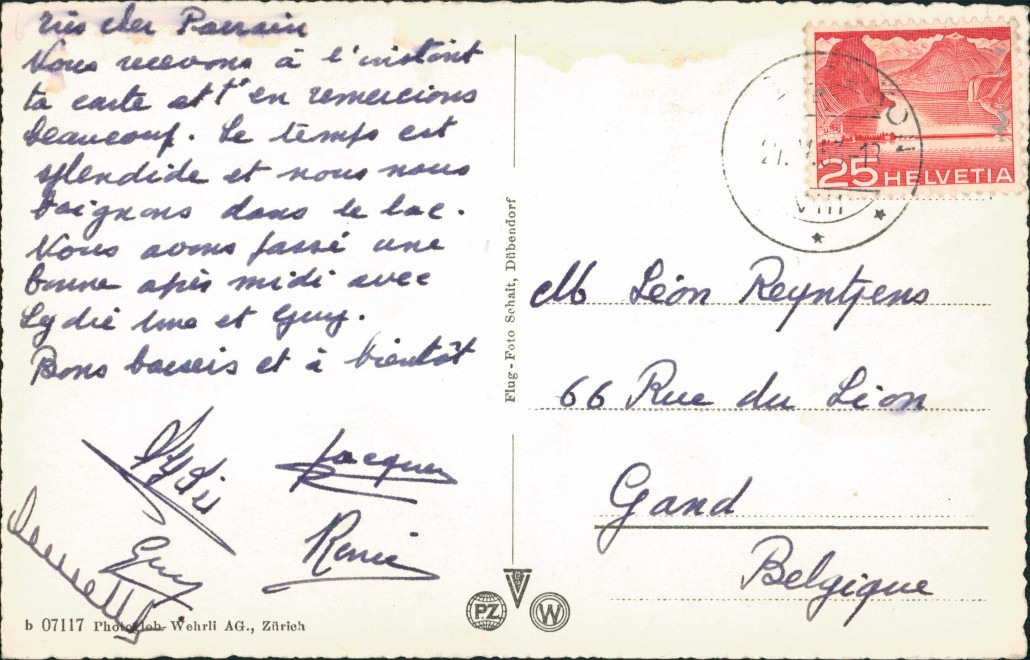 Très cher Parrain
Nous recevons à l'instant
ta carte et t'en remercions
beaucoup. Le temps est
splendide et nous nous
baignons dans le lac.
Nous avons passé une
bonne après midi avec
Lydie Ime et Guy.
Bons baisers et à bientôt
Lydie
Jacques
Guy
Renée
b 07117 Photoglob-Wehrli AG., Zürich
Flug-Foto Schait, Dübendorf
PZ
W
25 HELVETIA
VIII
M Léon Reyntjens
66 Rue du Lion
Gand
Belgique